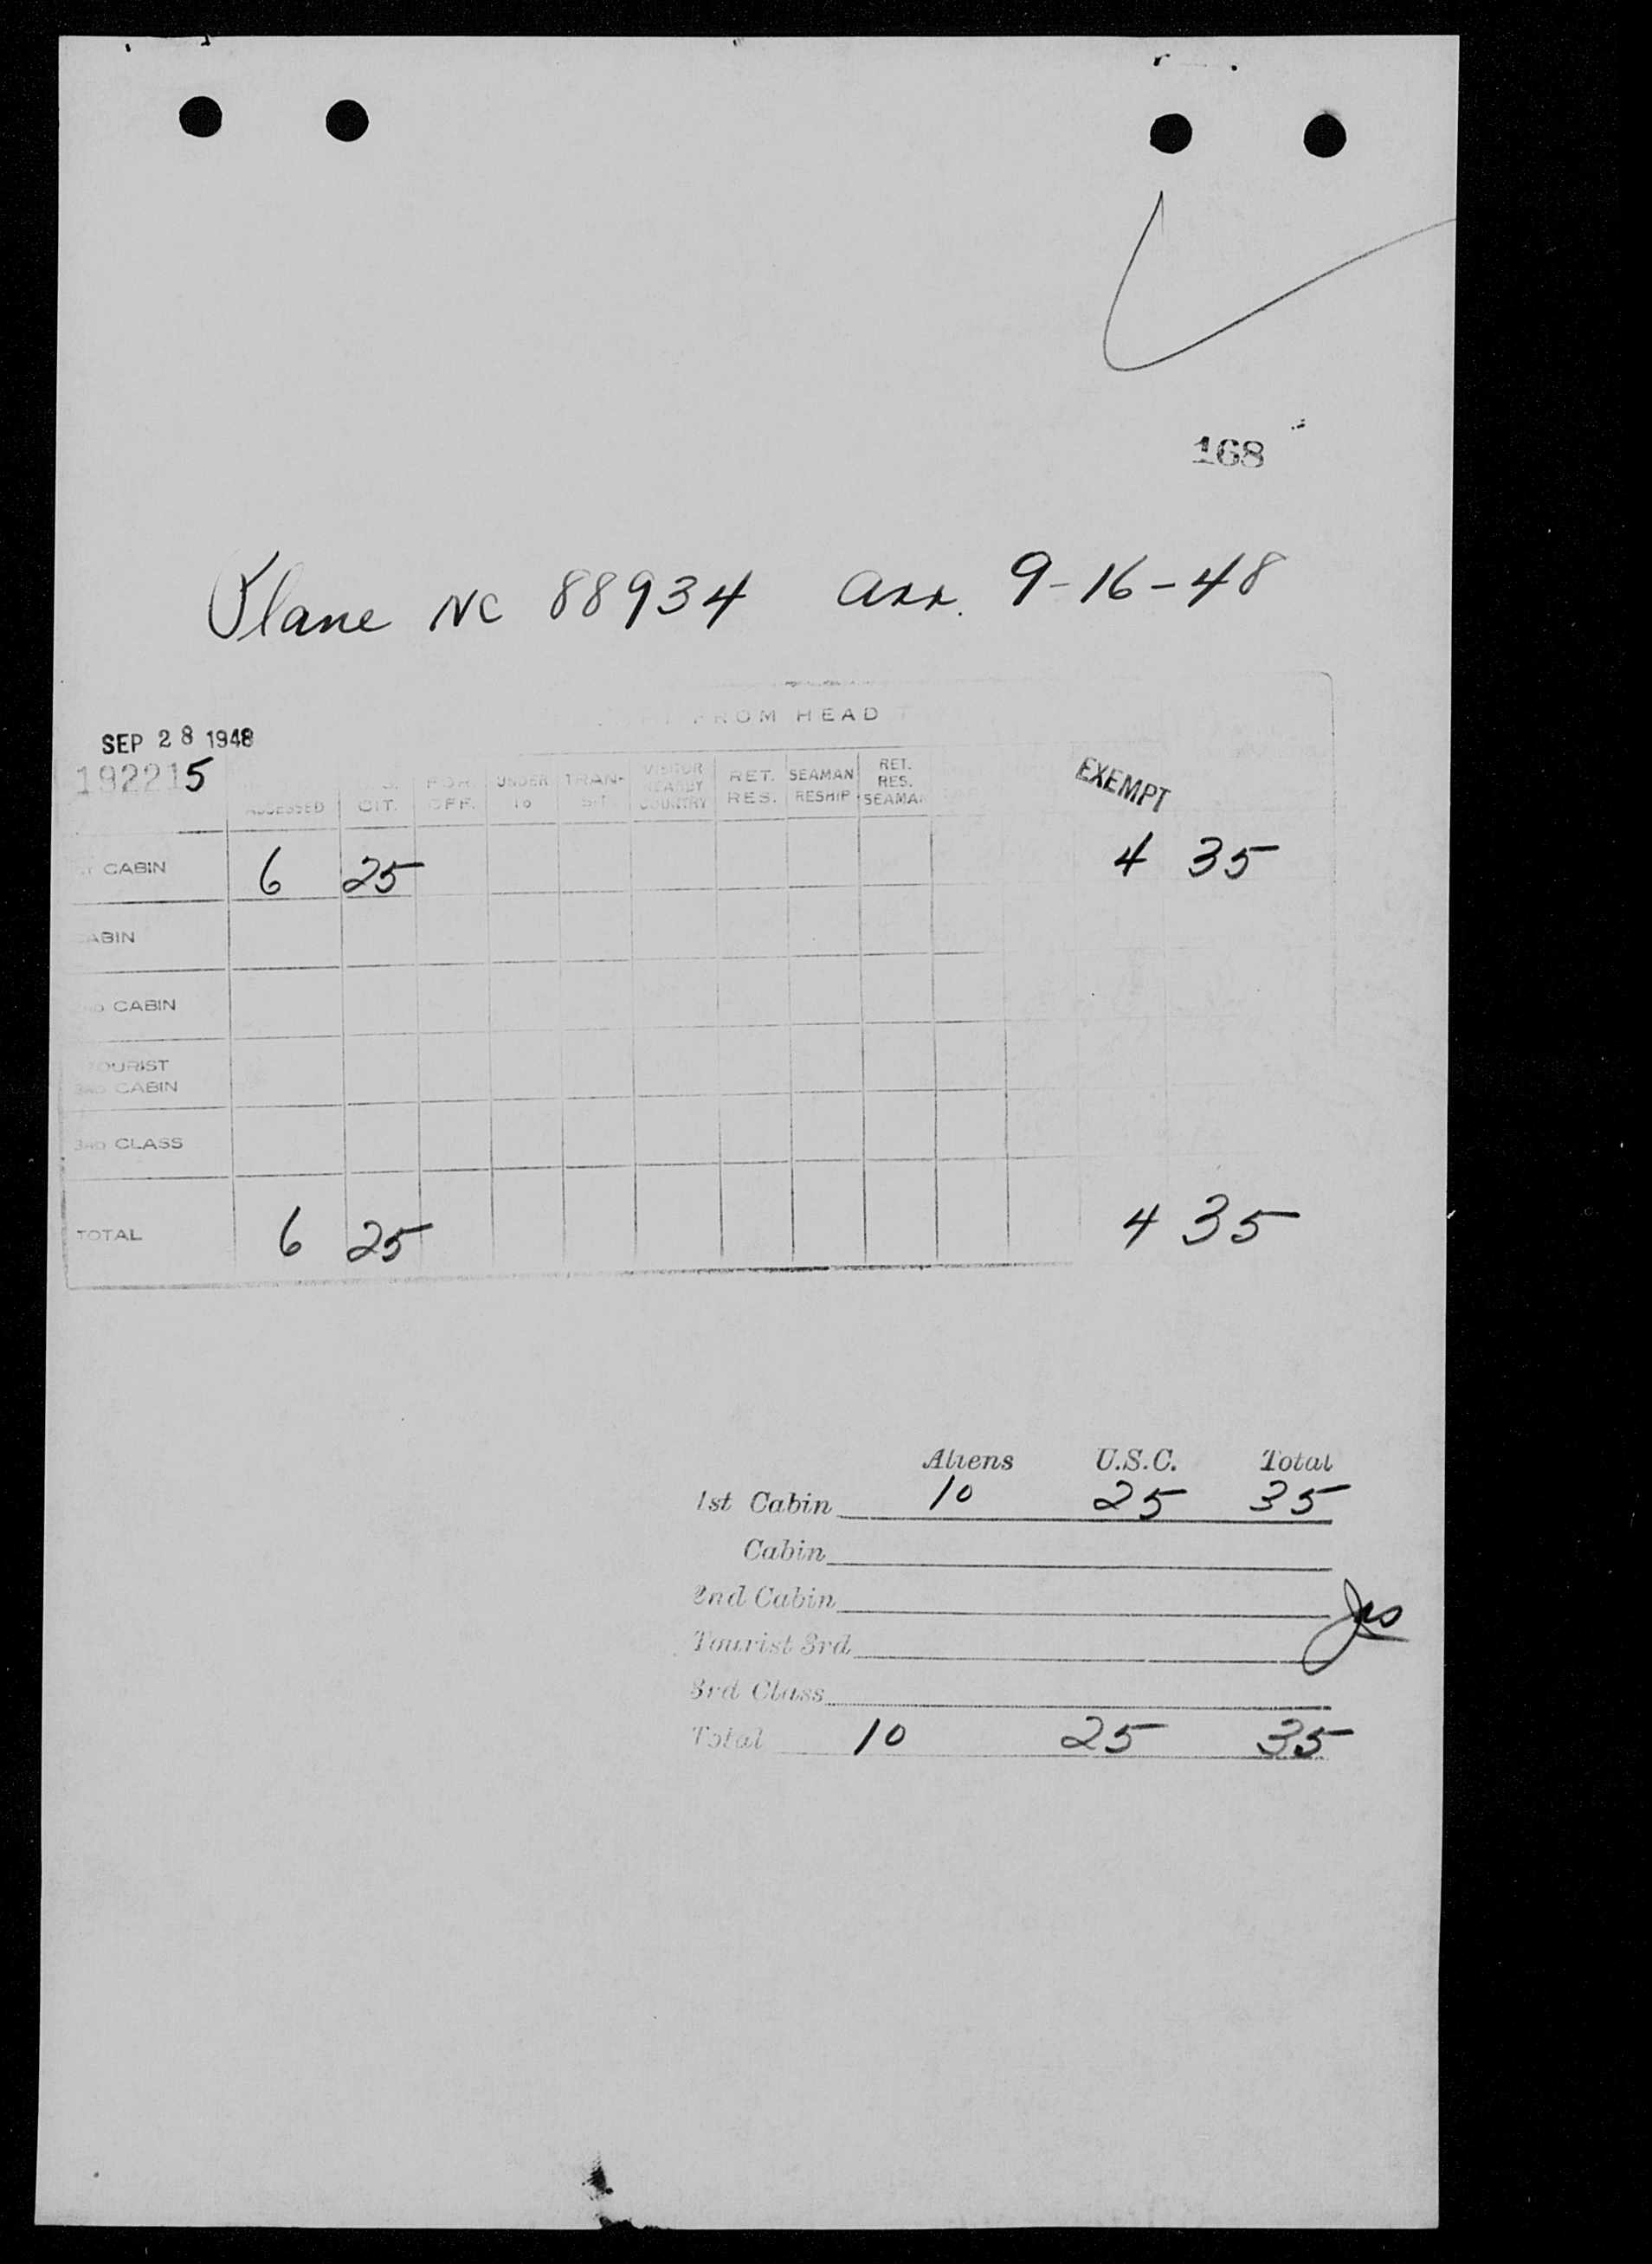 168
Plane NC 88934 arr. 9-16-48
FROM HEAD
SEP 28 1948
192215
ASSESSED CIT. FOR OFF. UNDER 16 TRAN-SIT VISITOR NEARBY COUNTRY RET. RES. SEAMAN RESHIP RET. RES. SEAMAN EXEMPT
CABIN 6 25 4 35
CABIN
CABIN
TOURIST
3RD CABIN
3RD CLASS
TOTAL 6 25 4 35
Aliens U.S.C. Total
1st Cabin 10 25 35
Cabin
2nd Cabin
Tourist 3rd
3rd Class
Total 10 25 35